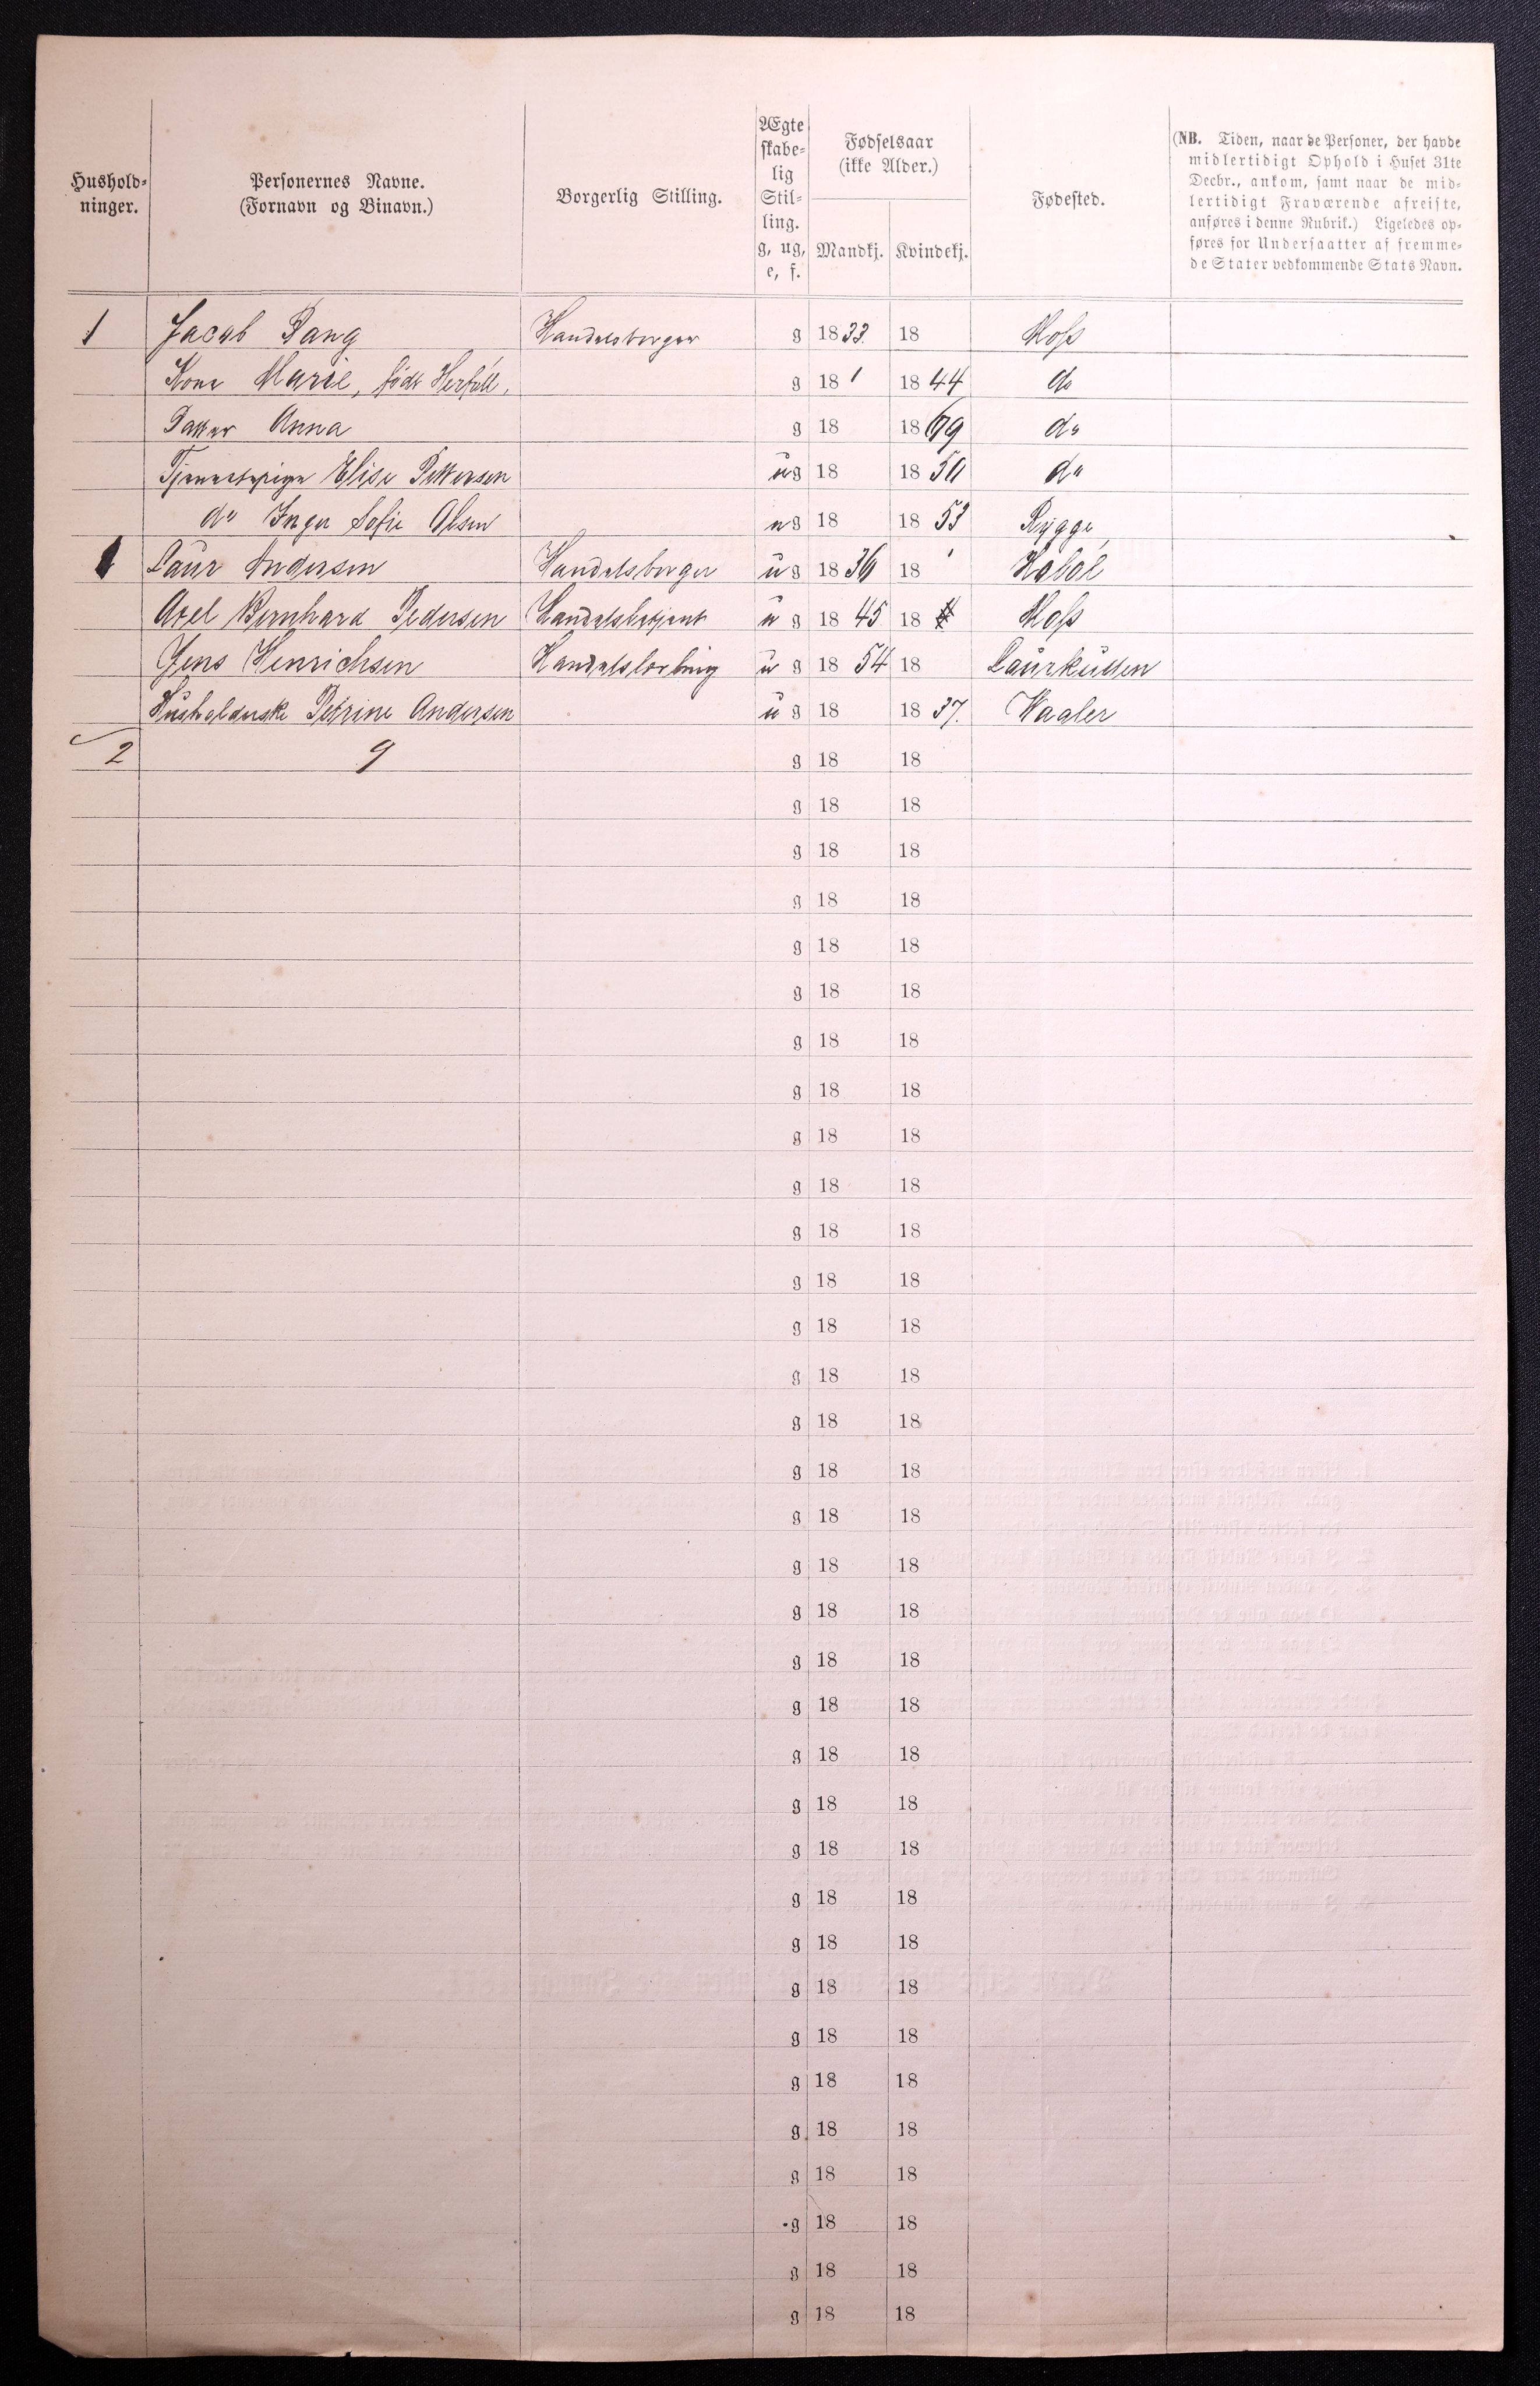 Hushold-
ninger.
Personernes Navne.
(Fornavn og Binavn.)
Borgerlig Stilling.
Ægte
skabe-
lig
Stil-
ling.
g, ug,
e, f.
Fødselsaar
(ikke Alder.)
Mandkj. Kvindekj.
Fødested.
(NB. Tiden, naar de Personer, der havde
midlertidigt Ophold i Huset 31te
Decbr., ankom, samt naar de mid-
lertidigt Fraværende afreiste,
anføres i denne Rubrik.) Ligeledes op-
føres for Undersaatter af fremme-
de Stater vedkommende Stats Navn.
1 Jacob Pang Handelsborger g 1833. 18 Moss
Kone Marie, født g 18 1844 do
Datter Anna g 18 1869 do
Tjenestepige Elise Pettersen ug 18 1850 do
do Inger Sofie Olsen ug 18 1853 Rygge
1 Laur Andersen Handelsborger ug 1836 18 Hobøl
Axel Bernhard Pedersen Handelsbetjent ug 1845 18 Moss
Jens Henrichsen Handelslærling ug 1854 18 Laurkullen
Husholderske Petrine Andersen ug 18 1837. Waaler
2 9 g 18 18
g 18 18
g 18 18
g 18 18
g 18 18
g 18 18
g 18 18
g 18 18
g 18 18
g 18 18
g 18 18
g 18 18
g 18 18
g 18 18
g 18 18
g 18 18
g 18 18
g 18 18
g 18 18
g 18 18
g 18 18
g 18 18
g 18 18
g 18 18
g 18 18
g 18 18
g 18 18
g 18 18
g 18 18
g 18 18
g 18 18
g 18 18
g 18 18
g 18 18